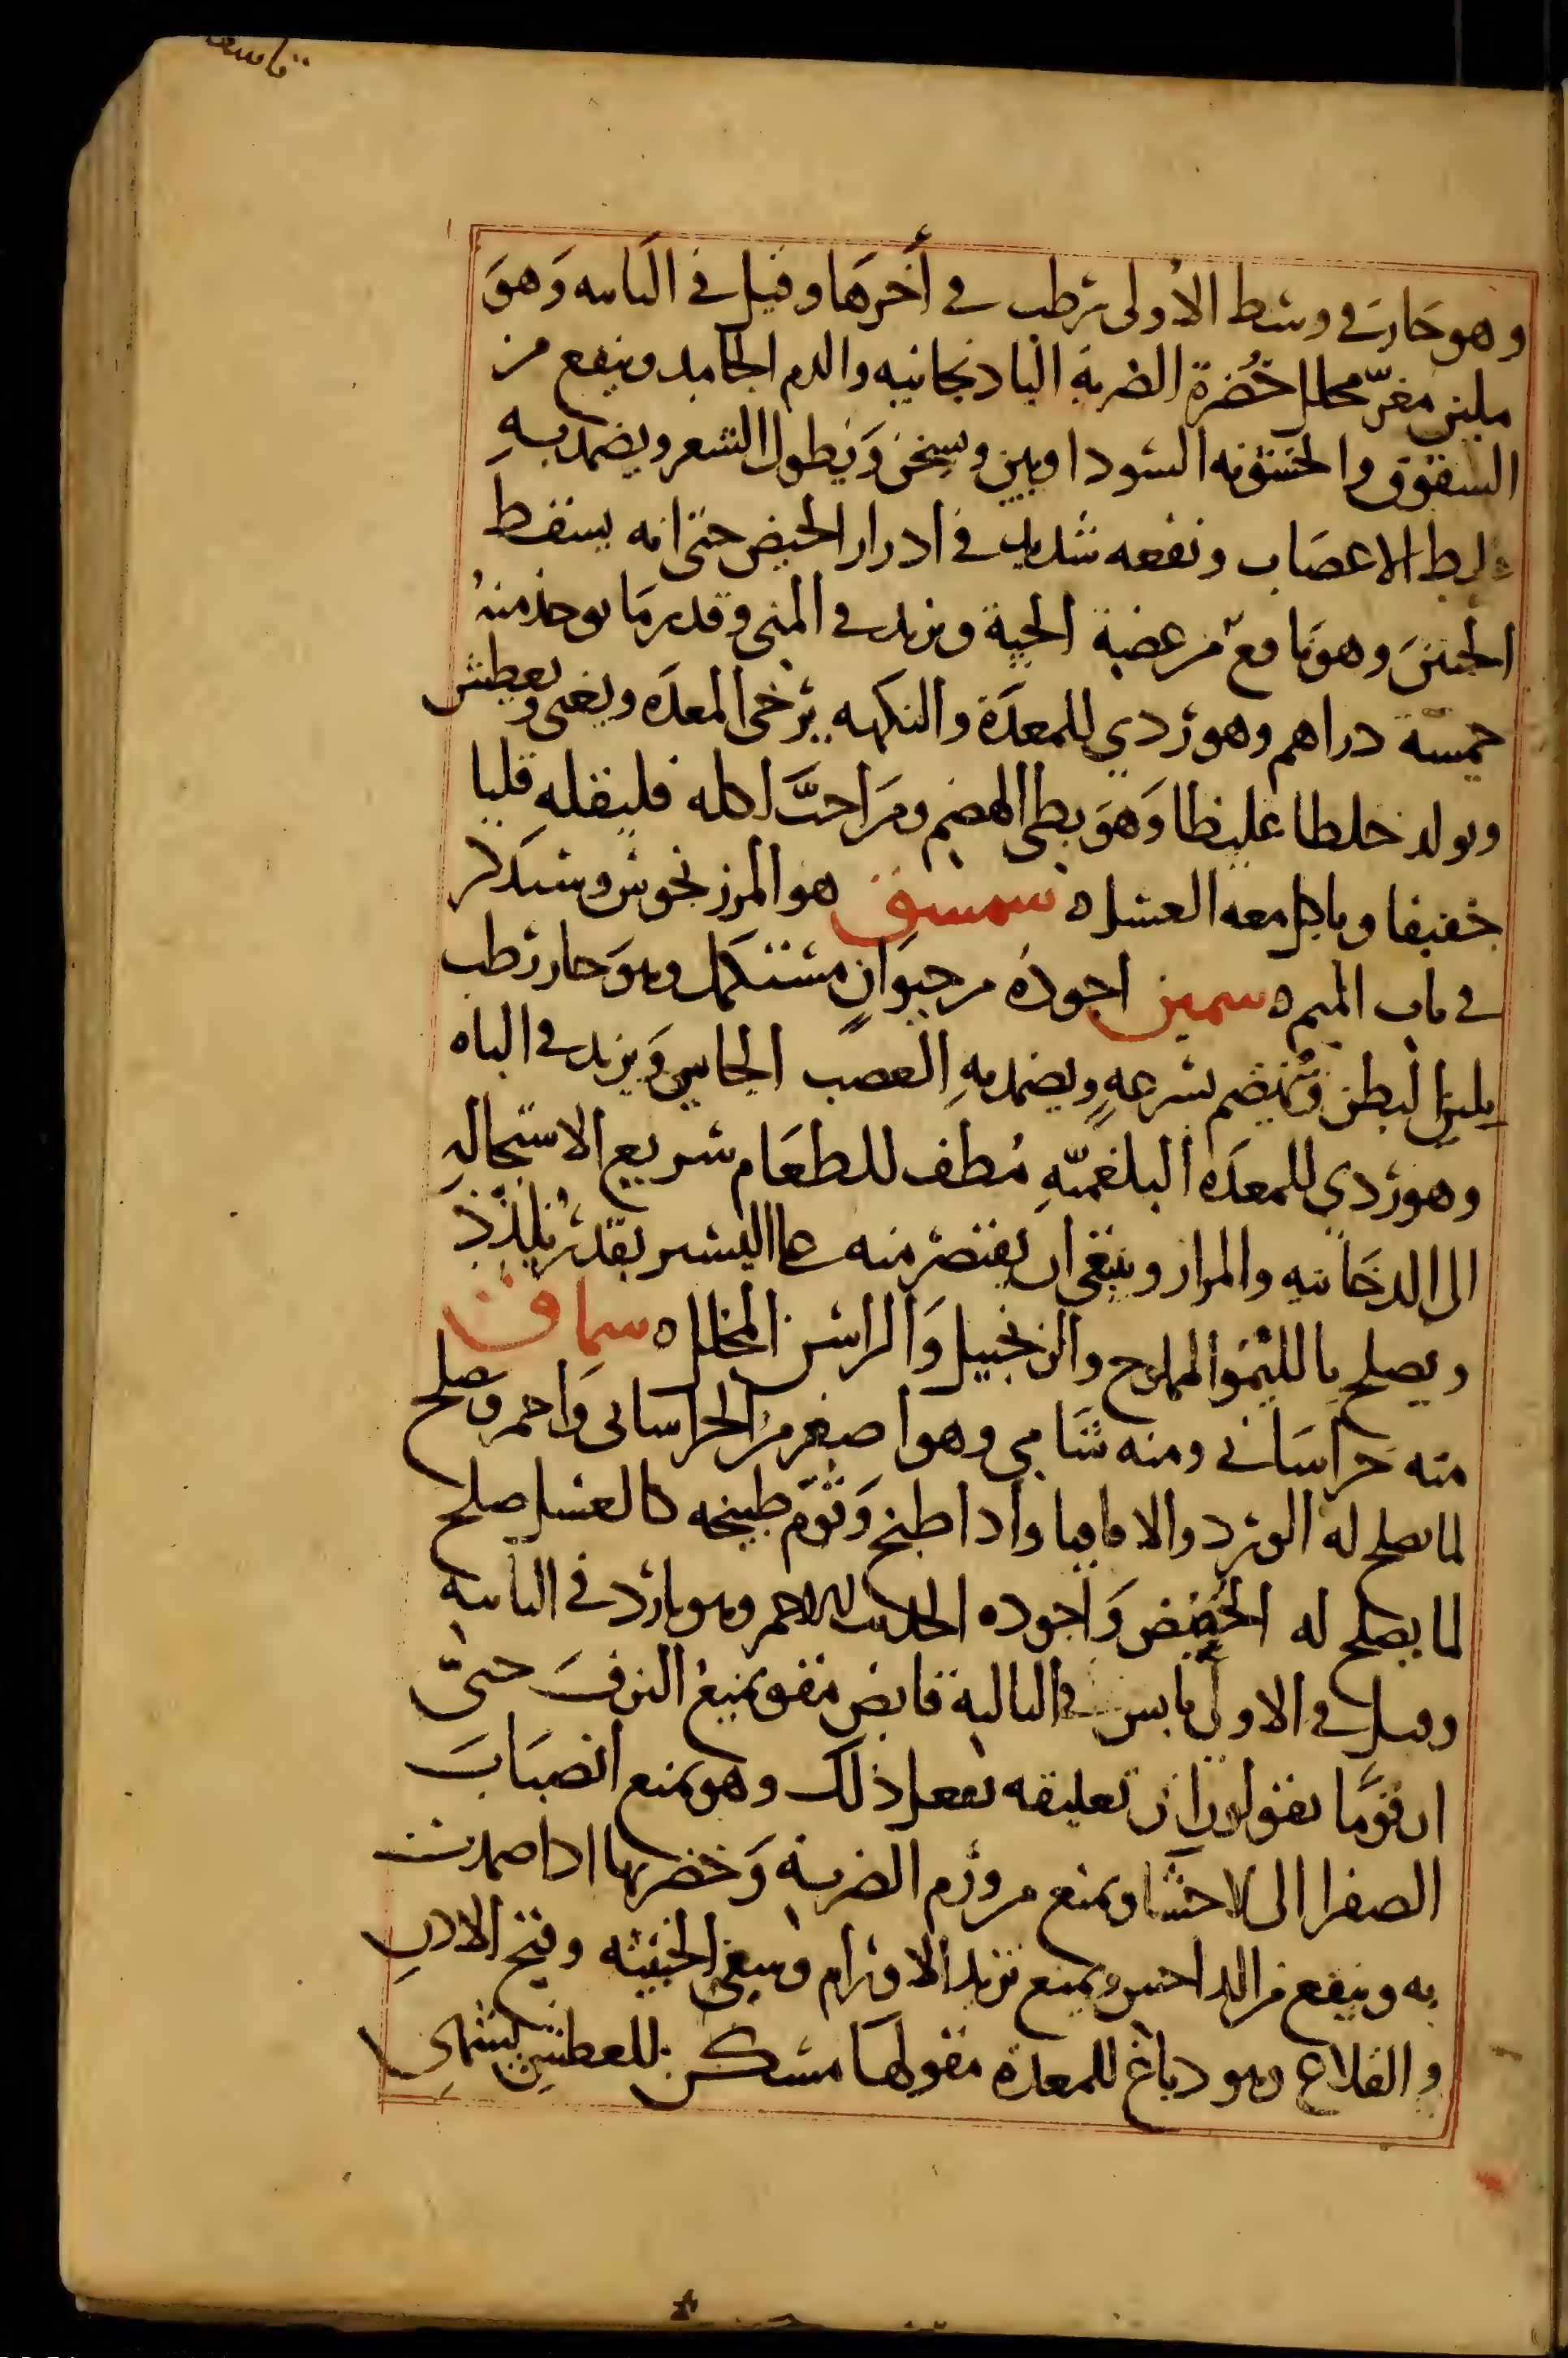 وهو حار في وسط الأولى رطب في أخرها وقيل في الثانيه وَهوَ
ملين مغرّ محلل خُضرة الضربة الباذنجانيه والدم الجامد وينفع من
الشقوق والخشونه السوداويين ويسخن وَيطول الشعر ويضمد بهِ
غلط الاعصاب ونفعه شديد في ادرار الحيض حتى انه يسقط
الجنينَ وهو نافع من عضة الحية ويزيد في المني وقدر مَا يوخذ منهُ
خمسة دراهم وهو ردي للمعدَة والنكهه يرخى المعدَه ويغى ويعطش
ويولد خلطا غليظا وَهوَ بطى الهضم ومَن احبَّ اكله فليقلهِ قليا
خفيفا وياكل معه العسل ه سمسق هو المرزنجوش وسيذكر
في باب الميم ه سمين اجودُه من حيوَانٍ مستكمل وهوَ حار رطب
يلين البطن وينهضم بسرعهٍ ويضمد بهِ العصب الجاسي وَيزيد في الباه
وهو ردي للمعدَه البلغميّهِ مُطف للطعَام سريع الاستحالهِ
الى الدخانيه والمرار وينبغي ان يقتصر منه على اليسير بقدر يُلذّذ
ويصلح بِالليْموا المملوح والزنجبيل وَالراسن المخلل ه سماق
منه خراسَاني ومنه شَامي وهو اصغر من الخراسانى وَاحمر وَصلح
لما يصلح له الورد والاقاقيا واذا طبخ وَقوّم طبيخه كالعسل صلح
لما يصلح له الحُضض وَاجوده الحديث الاحمر وهو بارد في الثانيه
وقيل في الاولى يابس في الثالثة قابض مقو يمنع النزفَ حتىّ
ان قوَّما يقولون ان تعليقه يفعل ذلك وهو يمنع انصبَابَ
الصفرا الى الاحشا ويمنع من ورم الضربة وَخضرتها اذا ضمدت
به وينفع من الداحس ويمنع تزيد الاورام وسعى الخبيثه وقيح الاذنِ
والقلاع وهو دباغ للمعدة مقو لهَا مسكن للعطشِ يشهى